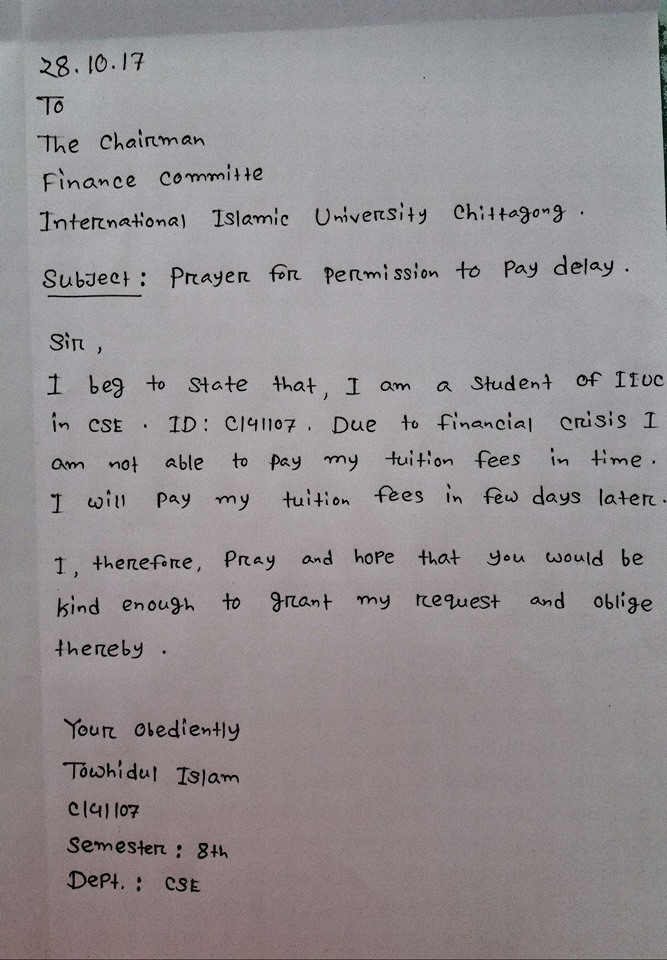 28.10.17
To
The Chairman
Finance committe
International Islamic University Chittagong .
Subject : Prayer for permission to pay delay .
Sir ,
I beg to State that, I am a student of IIUC
in CSE . ID : C141107 . Due to financial crisis I
am not able to pay my tuition fees in time .
I will pay my tuition fees in few days later .
I, therefore, Pray and hope that you would be
kind enough to grant my request and oblige
thereby .
Your obediently
Towhidul Islam
C141107
Semester : 8th
Dept. : CSE